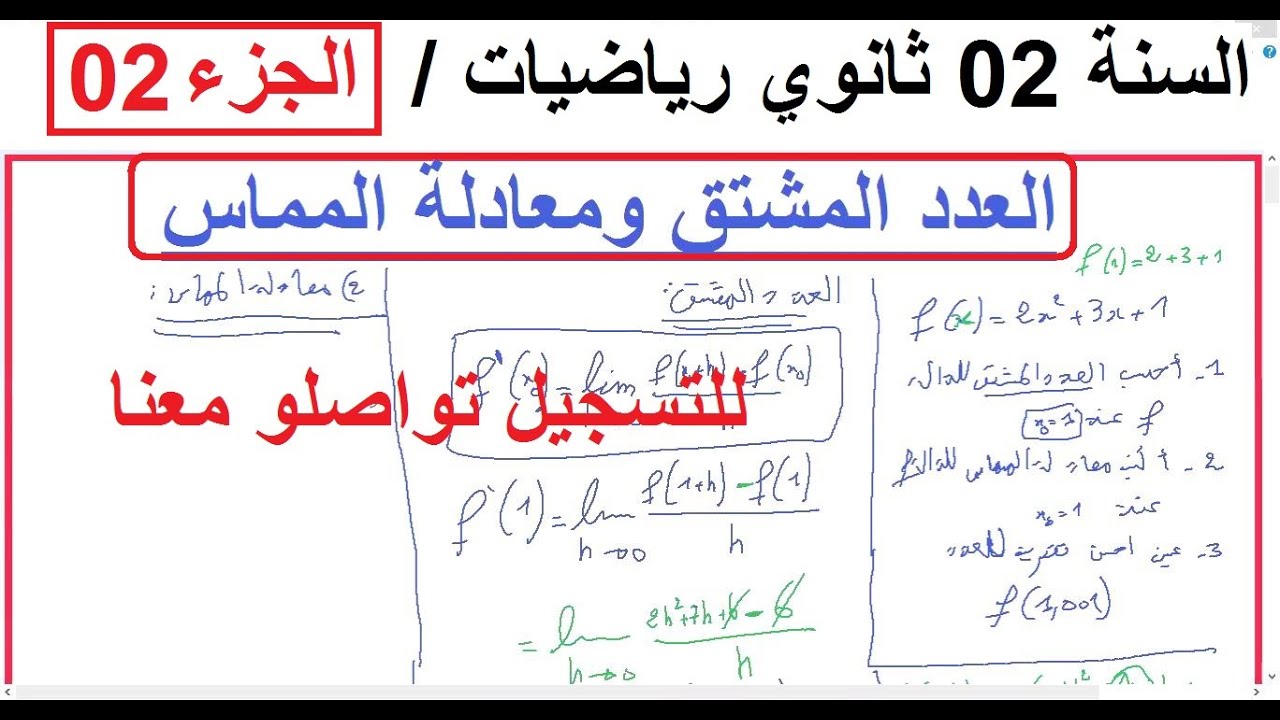 السنة 02 ثانوي رياضيات / الجزء 02
العدد المشتق ومعادلة المماس
f(1)=2+3+1
f(x)=2x²+3x+1
1- أحسب العدد المشتق للدالة
f عند x₀=1
2- أكتب معادلة المماس للدالة f
عند x₀=1
3- عين احسن تقريب للعدد
f(1,001)
العدد المشتق:
f'(x₀)=lim f(x₀+h)-f(x₀)
h
f'(1)=lim f(1+h)-f(1)
h→0 h
=lim 2h²+7h+6-6
h→0 h
2) معادلة المماس:
للتسجيل تواصلو معنا